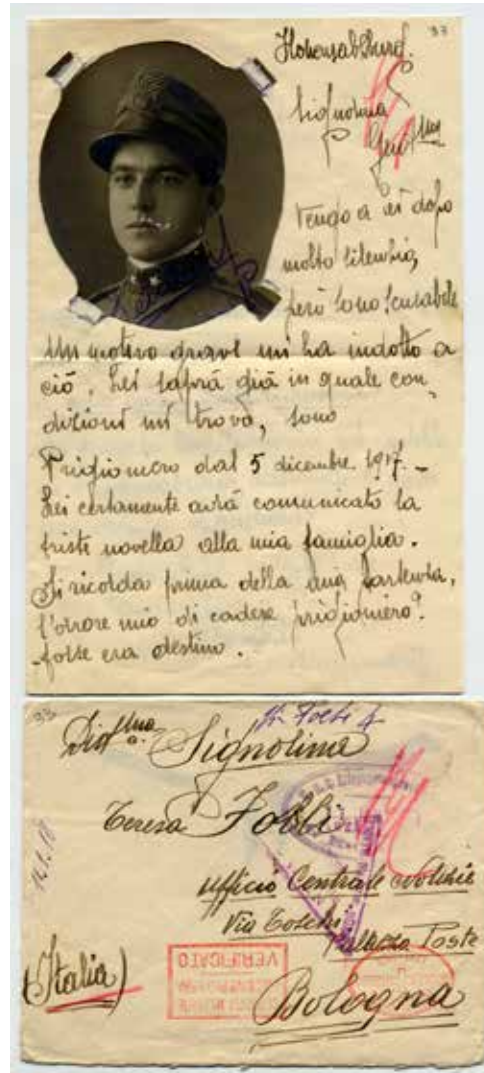 93
Signorina
Gent.ma
Vengo a lei dopo
molto silenzio,
però sono scusabile
Un motivo grave mi ha indotto a
ciò. Lei saprà già in quale con
dizioni mi trovo, sono
Prigioniero dal 5 dicembre 1917. -
Lei certamente avrà comunicato la
triste novella alla mia famiglia.
Si ricorda prima della mia partenza,
l'orrore mio di cadere prigioniero?
forse era destino.
93
Signorina
Teresa
Ufficio Centrale Notizie
Via Toschi
Palazzo Poste
(Italia)
Bologna
VERIFICATO